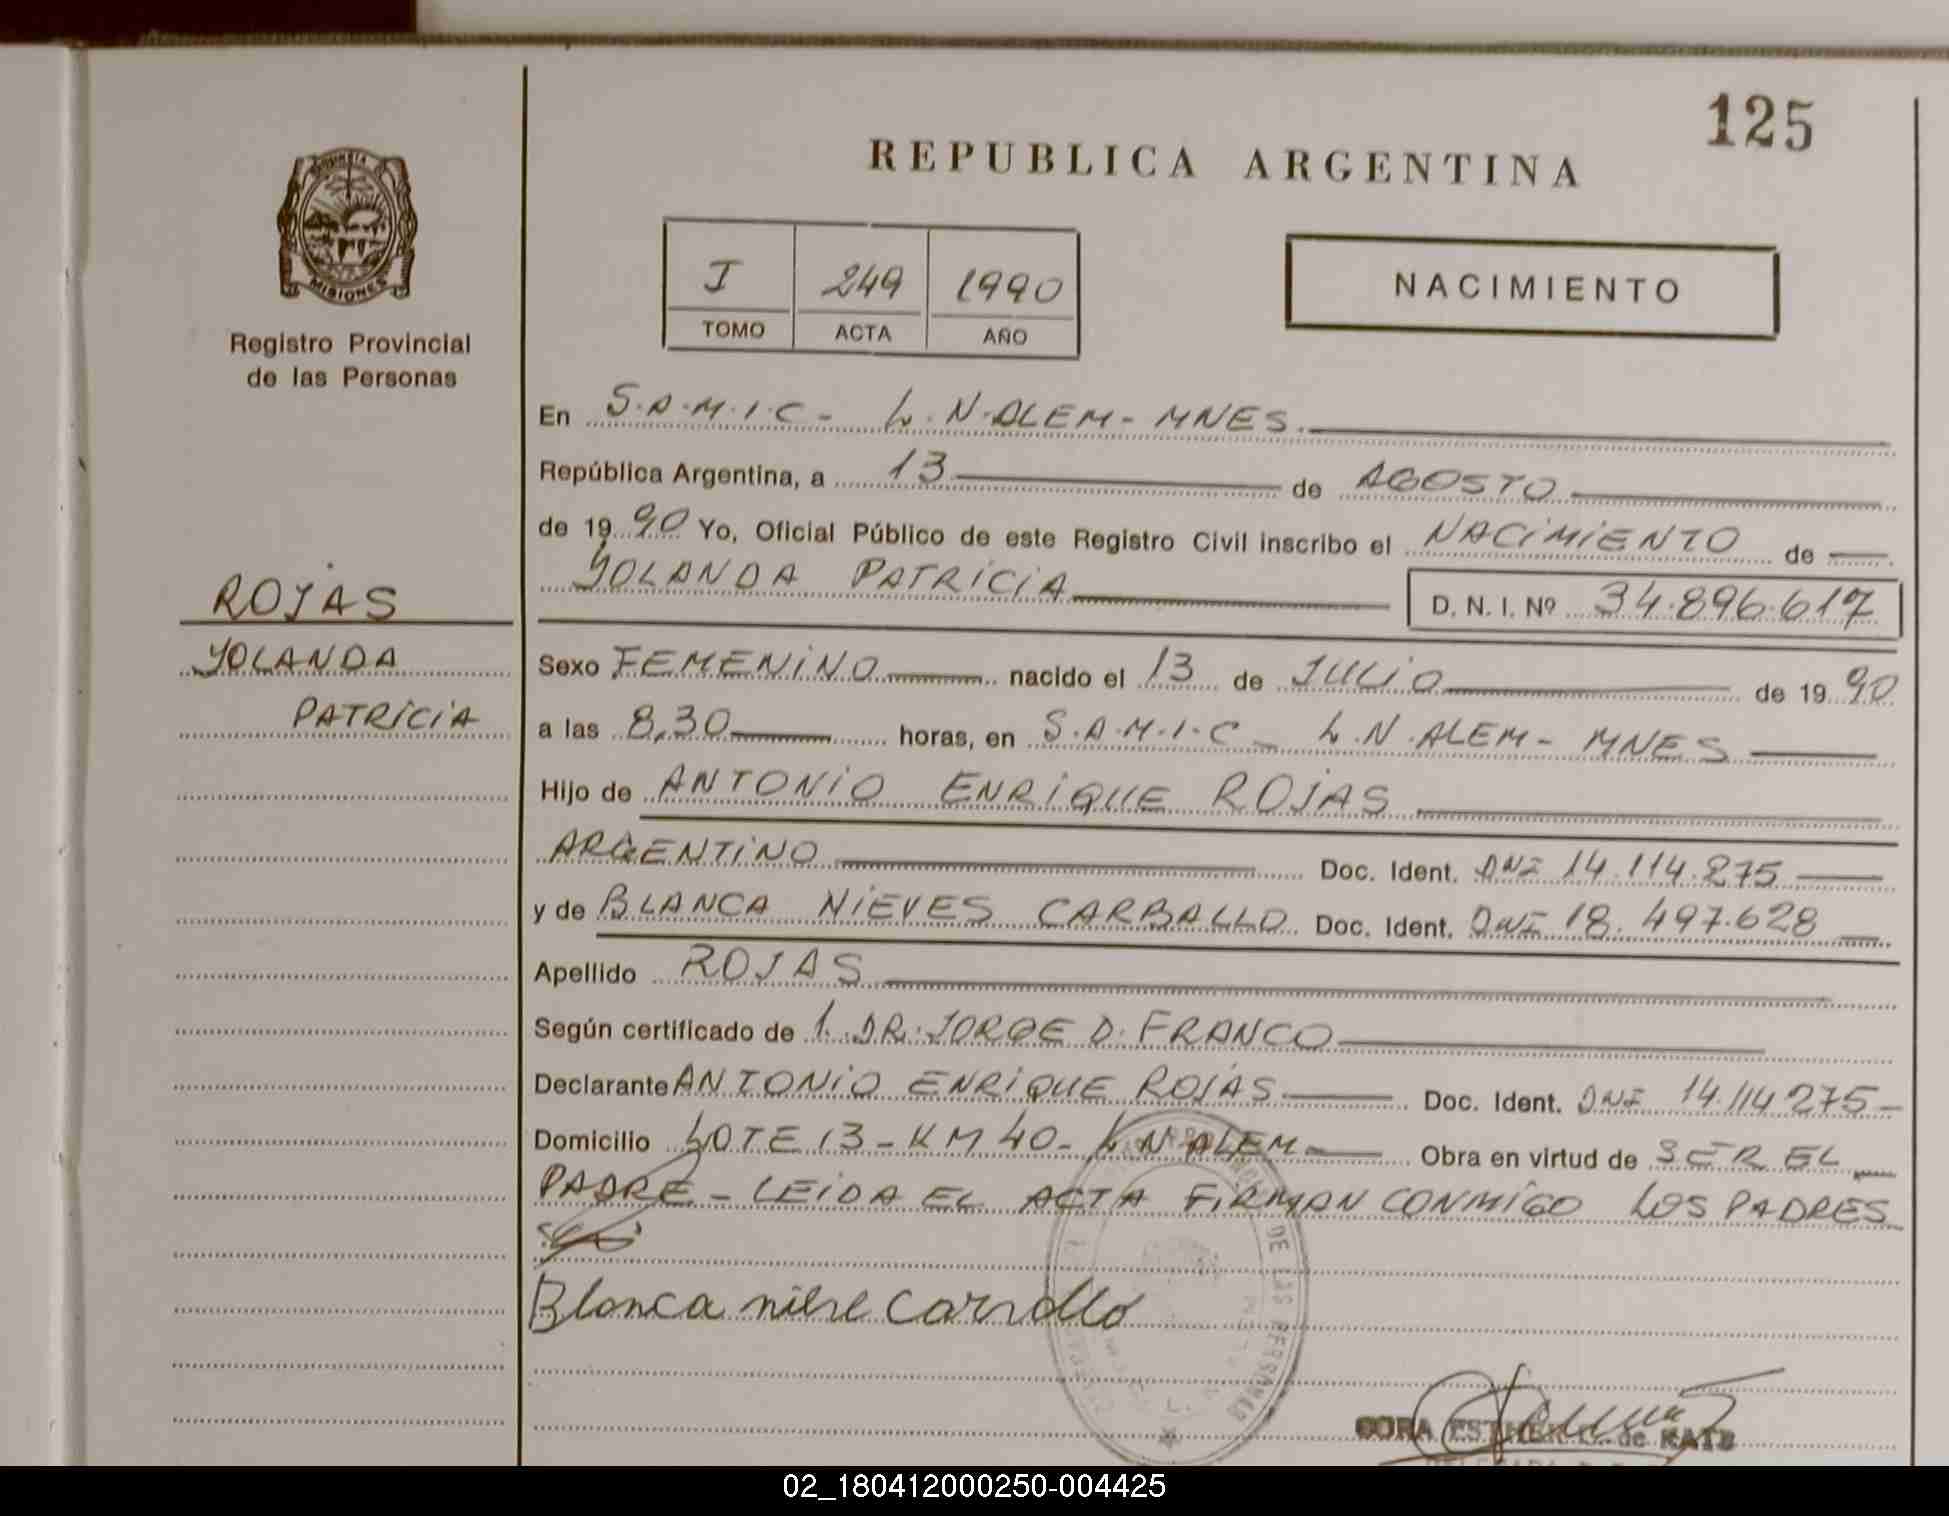 125
REPUBLICA ARGENTINA
MISIONES
Registro Provincial
de las Personas
I 249 1990
TOMO ACTA AÑO
NACIMIENTO
En S.A.M.I.C - L.N.ALEM - MNES.
República Argentina, a 13 de AGOSTO
de 19 90 Yo, Oficial Público de este Registro Civil inscribo el NACIMIENTO de
YOLANDA PATRICIA D. N. I. Nº 34.896.617
ROJAS
YOLANDA
PATRICIA
Sexo FEMENINO nacido el 13 de JULIO de 19 90
a las 8,30 horas, en S.A.M.I.C - L.N.ALEM - MNES
Hijo de ANTONIO ENRIQUE ROJAS
ARGENTINO Doc. Ident. DNI 14.114.275
y de BLANCA NIEVES CARBALLO Doc. Ident. DNI 18.497.628
Apellido ROJAS
Según certificado de 1. DR. JORGE D. FRANCO
Declarante ANTONIO ENRIQUE ROJAS Doc. Ident. DNI 14.114.275 -
Domicilio LOTE 13 - KM 40 - L.N ALEM Obra en virtud de SER EL
PADRE - LEIDA EL ACTA FIRMAN CONMIGO LOS PADRES
Blanca
DE LAS PERSONAS
ESTHER de KATZ
02_180412000250-004425